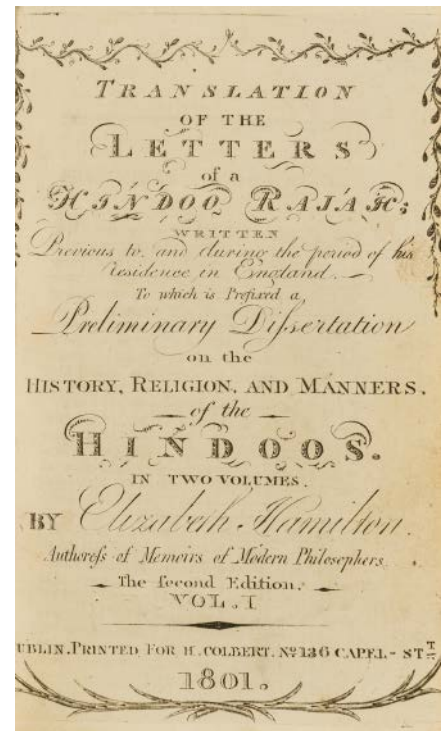 TRANSLATION
OF THE
LETTERS
of a
HINDOO RAJAH;
WRITTEN
Previous to, and during the period of his
residence in England.
To which is Prefixed a,
Preliminary Dissertation
on the
HISTORY, RELIGION, AND MANNERS,
of the
HINDOOS.
IN TWO VOLUMES.
BY Elizabeth Hamilton.
Authoreſs of Memoirs of Modern Philosophers.
The ſecond Edition.
VOL. I
UBLIN. PRINTED FOR H. COLBERT. No 136 CAPEL-STT
1801.